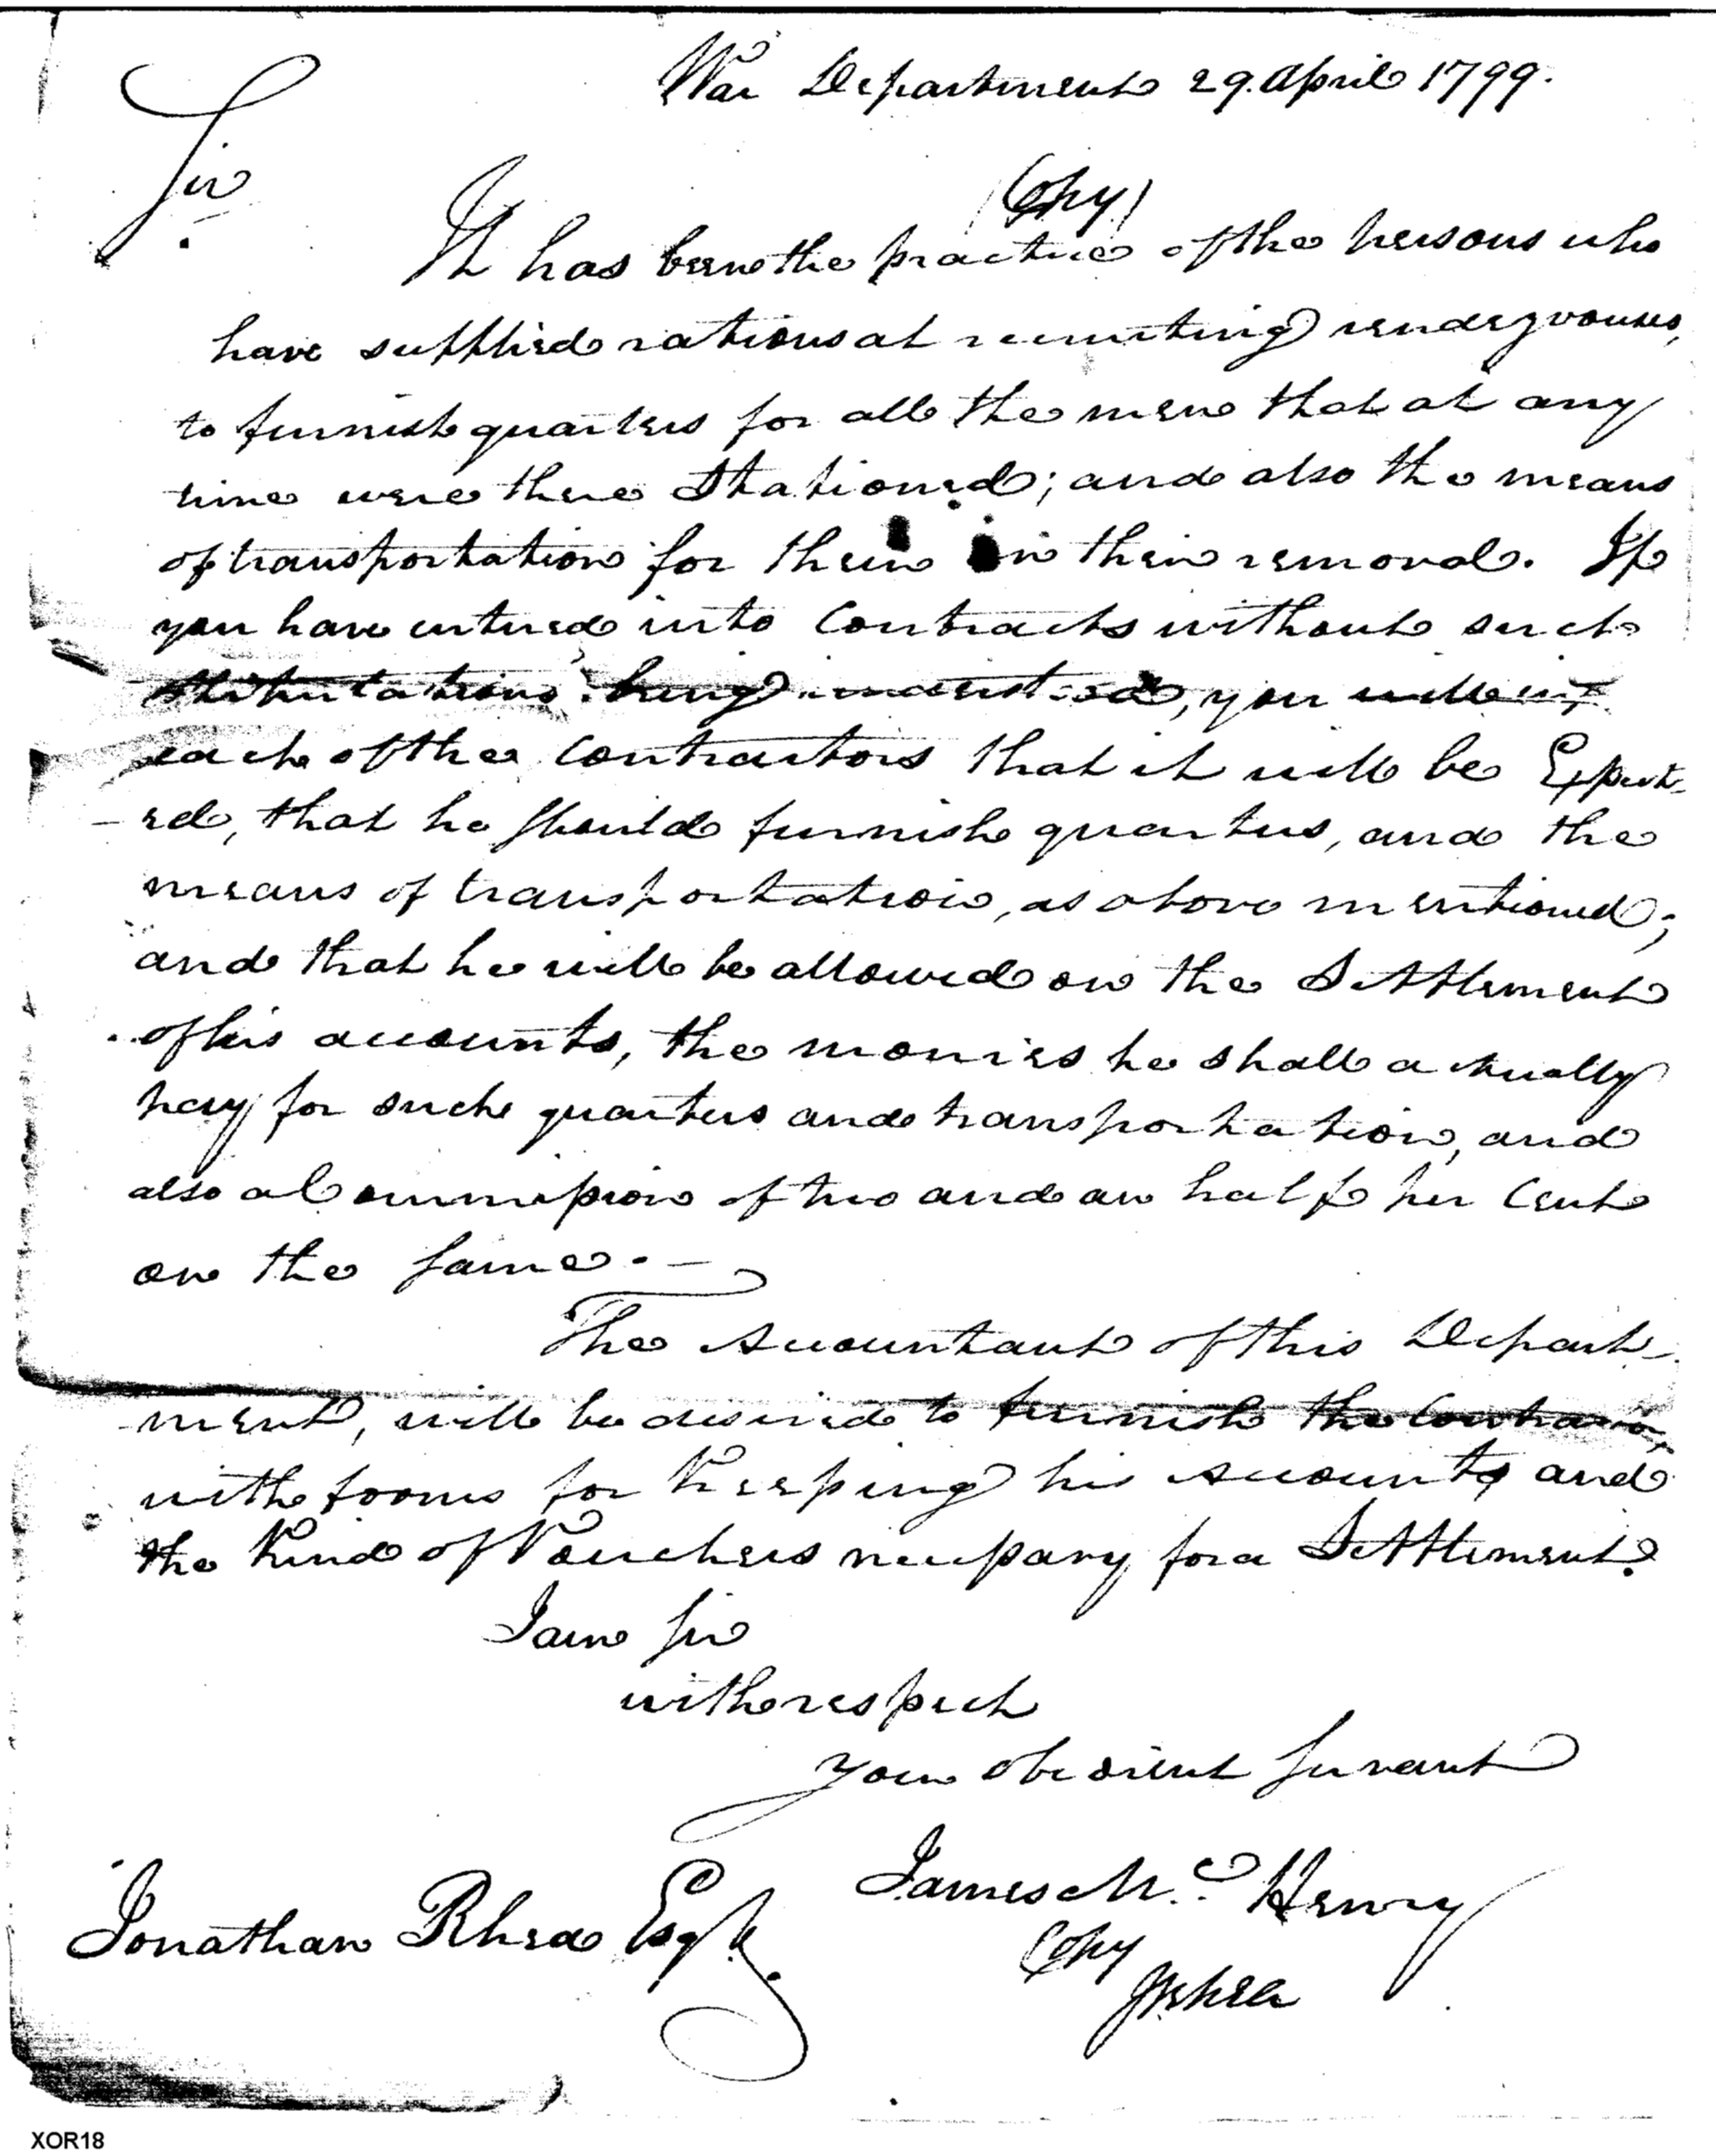 War Department 29. April 1799.
Sir
(Copy)
It has been the practice of the persons who
have supplied rations at recruiting rendezvouses,
to furnish quarters for all the men that at any
time were there Stationed; and also the means
of transportation for them on their removal. If
you have entered into Contracts without such
stipulations being understood, you will
each of the Contractors that it will be Expect-
-ed, that he should furnish quarters, and the
means of transportation, as above mentioned;
and that he will be allowed on the Settlement
of his accounts, the monies he shall actually
pay for such quarters and transportation, and
also a Commission of two and an half per Cent
on the same. —
The Accountant of this Depart-
-ment, will be desired to furnish the Contractor
with forms for Keeping his Accounts and
the Kind of Vouchers necessary for a Settlement.
I am Sir
with respect
your obedient Servant
James Mc. Henry
Jonathan Rhea Esqr.
Copy
JRhea
XOR18